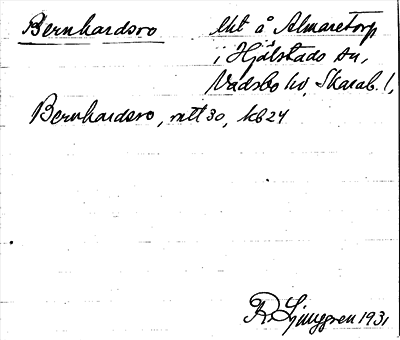 Bernhardsro lht å Almaretorp
i Hjälstads sn,
Vadsbo hd, Skarab. l,
Bernhardsro, rätt 30, kb 24
R. Ljunggren 1931